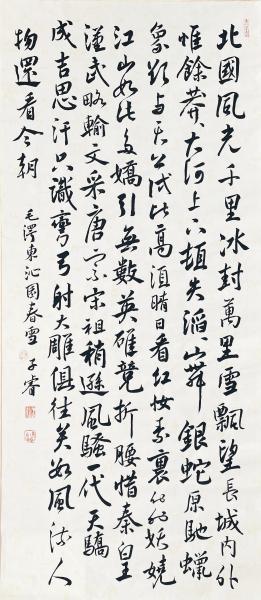 北國風光千里冰封萬里雪飄望長城內外
惟餘莽、大河上下頓失滔、山舞銀蛇原馳蠟
象欲与天公試比高須晴日看紅妝素裹分外妖嬈
江山如此多嬌引無數英雄競折腰惜秦皇
漢武略輸文采唐宗宋祖稍遜風騷一代天驕
成吉思汗只識彎弓射大雕俱往矣數風流人
物還看今朝
毛澤東沁園春雪 子睿